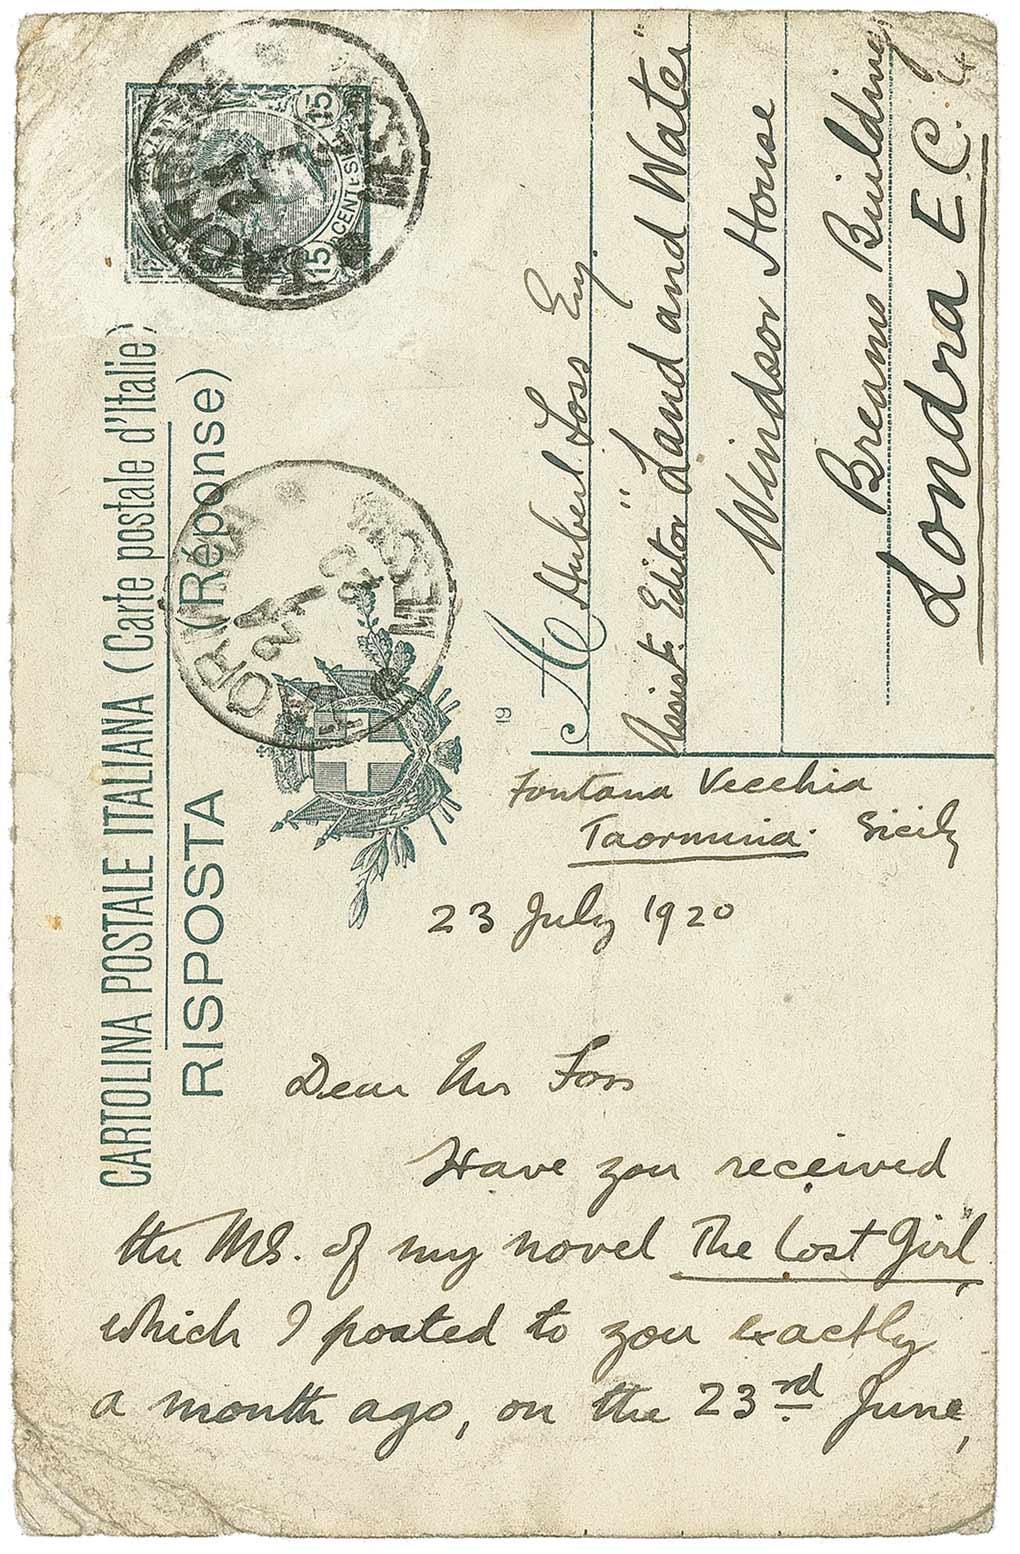 CARTOLINA POSTALE ITALIANA (Carte postale d'Italie)
RISPOSTA (Réponse)
15 CENTESIMI 15
MES
MES
19
A Hubert Foss Esq.
Assist: Editor "Land and Water"
Windsor House
Breams Buildings
Londra E.C. 4
Fontana Vecchia
Taormina. Sicily
23 July 1920
Dear Mr Foss
Have you received
the MS. of my novel The Lost Girl,
which I posted to you exactly
a month ago, on the 23rd June,